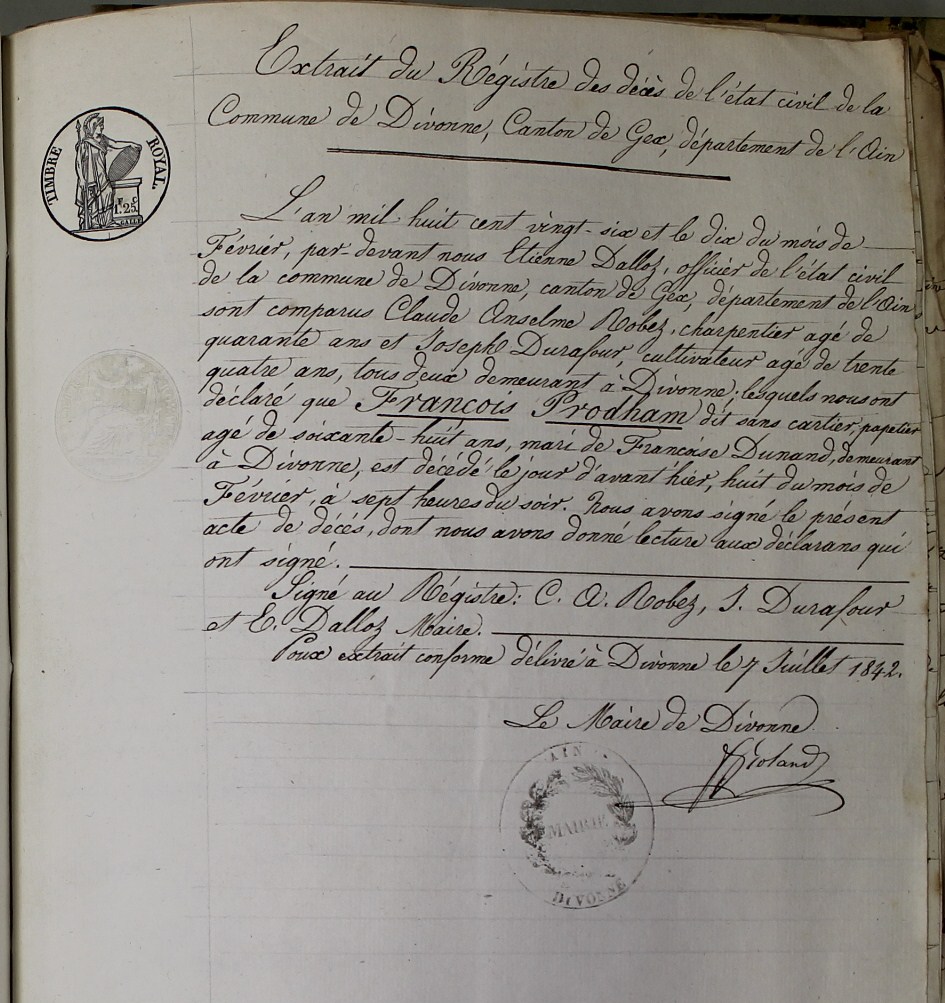 Extrait du Régistre des décès de l'état civil de la
Commune de Divonne, Canton de Gex, département de l'Ain
TIMBRE ROYAL.
F. C.
1.25.
L'an mil huit cent vingt-six et le dix du mois de
Février, par-devant nous Etienne Dalloz, officier de l'état civil
de la commune de Divonne, canton de Gex, département de l'Ain
sont comparus Claude Anselme Robez, charpentier agé de
quarante ans et Joseph Durafour, cultivateur agé de trente
quatre ans, tous deux demeurant à Divonne; lesquels nous ont
déclaré que François Prodham dit sans cartier, papetier
agé de soixante-huit ans, mari de Francoise Dunand, demeurant
à Divonne, est décédé le jour d'avant hier, huit du mois de
Février, à sept heures du soir. Nous avons signé le présent
acte de décés, dont nous avons donné lecture aux déclarans qui
ont signé.
Signé au Régistre: C. A. Robez, J. Durafour
et E. Dalloz Maire.
Pour extrait conforme délivré à Divonne le 7 Juillet 1842.
Le Maire de Divonne
AIN
MAIRIE
DIVONNE